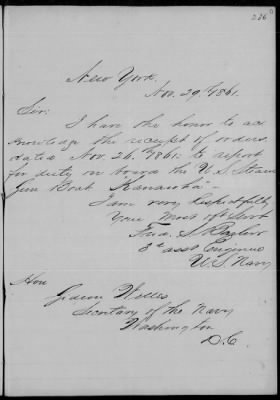 236
New York.
Nov. 29, 1861.
Sir:
I have the honor to ac
knowledge the receipt of orders,
dated Nov. 26, 1861. to report
for duty on board the U.S. Steam
Gun Boat Kanawha.
I am very respectfully
Your Most obt Servt
Fred. S.
3d asst Engineer
U.S. Navy
Hon
Gideon Welles
Secretary of the Navy
Washington
D.C.